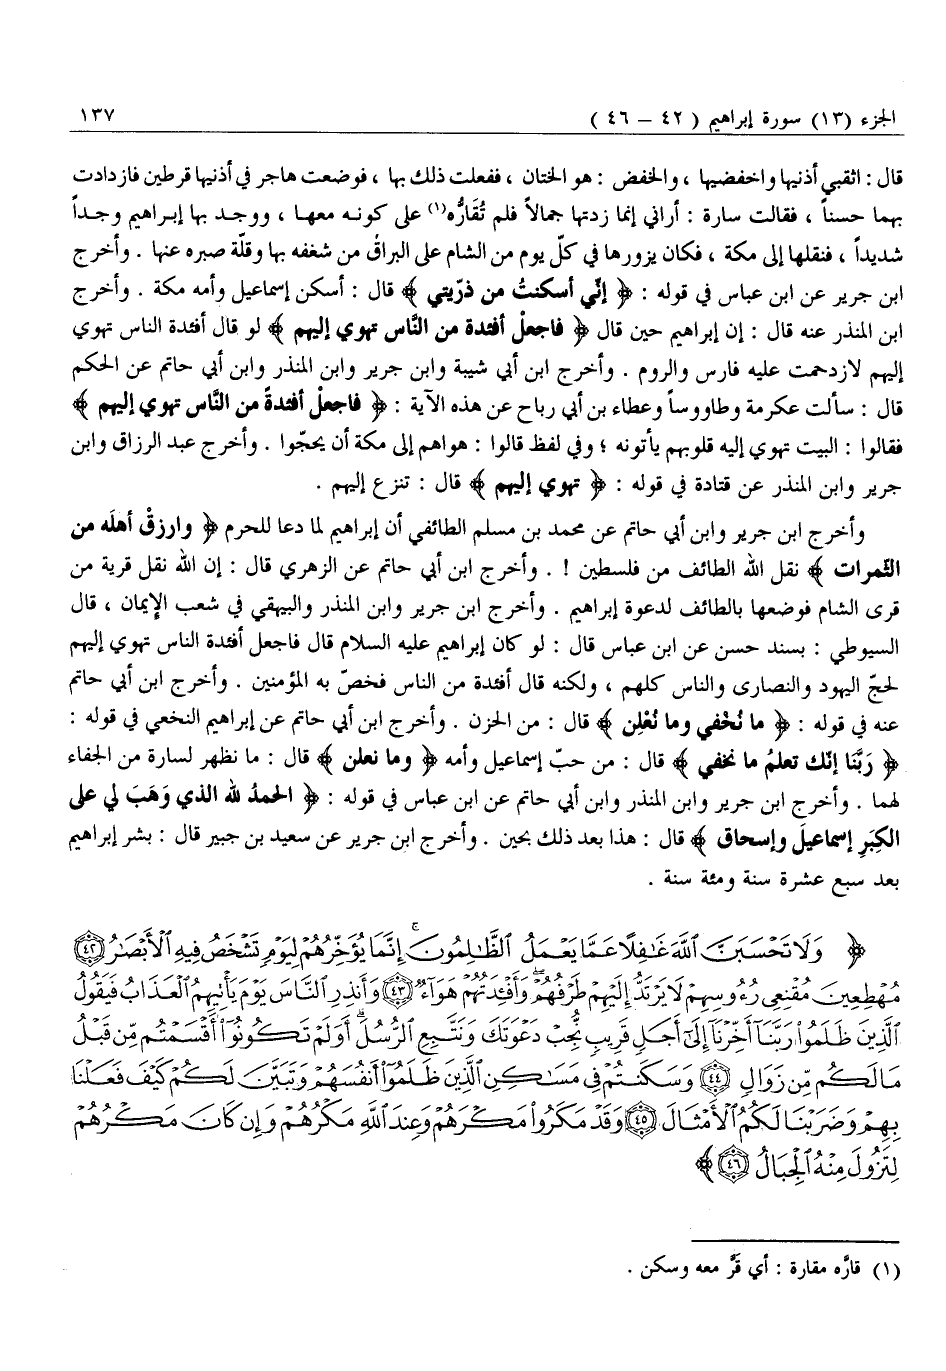 الجزء (١٣) سورة إبراهيم ( ٤٢ – ٤٦ ) ١٣٧
قال : اثقبي أذنيها واخفضيها ، والخفض : هو الختان ، ففعلت ذلك بها ، فوضعت هاجر في أذنيها قرطين فازدادت
بهما حسناً ، فقالت سارة : أراني إنما زدتها جمالاً فلم تُقَارُّه(١) على كونه معها ، ووجد بها إبراهيم وجداً
شديداً ، فنقلها إلى مكة ، فكان يزورها في كلّ يوم من الشام على البراق من شغفه بها وقلّة صبره عنها . وأخرج
ابن جرير عن ابن عباس في قوله : ﴿ إنّي أسكنتُ من ذرّيتي ﴾ قال : أسكن إسماعيل وأمه مكة . وأخرج
ابن المنذر عنه قال : إن إبراهيم حين قال ﴿ فاجعلْ أفئدة من النَّاس تهوي إليهم ﴾ لو قال أفئدة الناس تهوي
إليهم لازدحمت عليه فارس والروم . وأخرج ابن أبي شيبة وابن جرير وابن المنذر وابن أبي حاتم عن الحكم
قال : سألت عكرمة وطاووساً وعطاء بن أبي رباح عن هذه الآية : ﴿ فاجعلْ أفئدةً من النَّاس تهوي إليهم ﴾
فقالوا : البيت تهوي إليه قلوبهم يأتونه ؛ وفي لفظ قالوا : هواهم إلى مكة أن يحجّوا . وأخرج عبد الرزاق وابن
جرير وابن المنذر عن قتادة في قوله : ﴿ تهوي إليهم ﴾ قال : تنزع إليهم .
وأخرج ابن جرير وابن أبي حاتم عن محمد بن مسلم الطائفي أن إبراهيم لما دعا للحرم ﴿ وارزقْ أهلَه من
الثّمرات ﴾ نقل الله الطائف من فلسطين ! . وأخرج ابن أبي حاتم عن الزهري قال : إن الله نقل قرية من
قرى الشام فوضعها بالطائف لدعوة إبراهيم . وأخرج ابن جرير وابن المنذر والبيهقي في شعب الإيمان ، قال
السيوطي : بسند حسن عن ابن عباس قال : لو كان إبراهيم عليه السلام قال فاجعل أفئدة الناس تهوي إليهم
لحجّ اليهود والنصارى والناس كلهم ، ولكنه قال أفئدة من الناس فخصّ به المؤمنين . وأخرج ابن أبي حاتم
عنه في قوله : ﴿ ما نُخْفي وما نُعْلِن ﴾ قال : من الحزن . وأخرج ابن أبي حاتم عن إبراهيم النخعي في قوله :
﴿ رَبَّنَا إنّك تعلمُ ما نخفي ﴾ قال : من حبّ إسماعيل وأمه ﴿ وما نعلن ﴾ قال : ما نظهر لسارة من الجفاء
لهما . وأخرج ابن جرير وابن المنذر وابن أبي حاتم عن ابن عباس في قوله : ﴿ الحمدُ لله الذي وَهَبَ لي على
الكِبَرِ إسماعيلَ وإسحاق ﴾ قال : هذا بعد ذلك بحين . وأخرج ابن جرير عن سعيد بن جبير قال : بشر إبراهيم
بعد سبع عشرة سنة ومئة سنة .
﴿ وَلَا تَحْسَبَنَّ اللَّهَ غَافِلًا عَمَّا يَعْمَلُ الظَّالِمُونَ إِنَّمَا يُؤَخِّرُهُمْ لِيَوْمٍ تَشْخَصُ فِيهِ الْأَبْصَارُ ٤٢
مُهْطِعِينَ مُقْنِعِي رُءُوسِهِمْ لَا يَرْتَدُّ إِلَيْهِمْ طَرْفُهُمْ وَأَفْئِدَتُهُمْ هَوَاءٌ ٤٣ وَأَنْذِرِ النَّاسَ يَوْمَ يَأْتِيهِمُ الْعَذَابُ فَيَقُولُ
الَّذِينَ ظَلَمُوا رَبَّنَا أَخِّرْنَا إِلَى أَجَلٍ قَرِيبٍ نُجِبْ دَعْوَتَكَ وَنَتَّبِعِ الرُّسُلَ أَوَلَمْ تَكُونُوا أَقْسَمْتُمْ مِنْ قَبْلُ
مَا لَكُمْ مِنْ زَوَالٍ ٤٤ وَسَكَنْتُمْ فِي مَسَاكِنِ الَّذِينَ ظَلَمُوا أَنْفُسَهُمْ وَتَبَيَّنَ لَكُمْ كَيْفَ فَعَلْنَا
بِهِمْ وَضَرَبْنَا لَكُمُ الْأَمْثَالَ ٤٥ وَقَدْ مَكَرُوا مَكْرَهُمْ وَعِنْدَ اللَّهِ مَكْرُهُمْ وَإِنْ كَانَ مَكْرُهُمْ
لِتَزُولَ مِنْهُ الْجِبَالُ ٤٦ ﴾
(١) قارّه مقارة : أي قَرَّ معه وسكن .